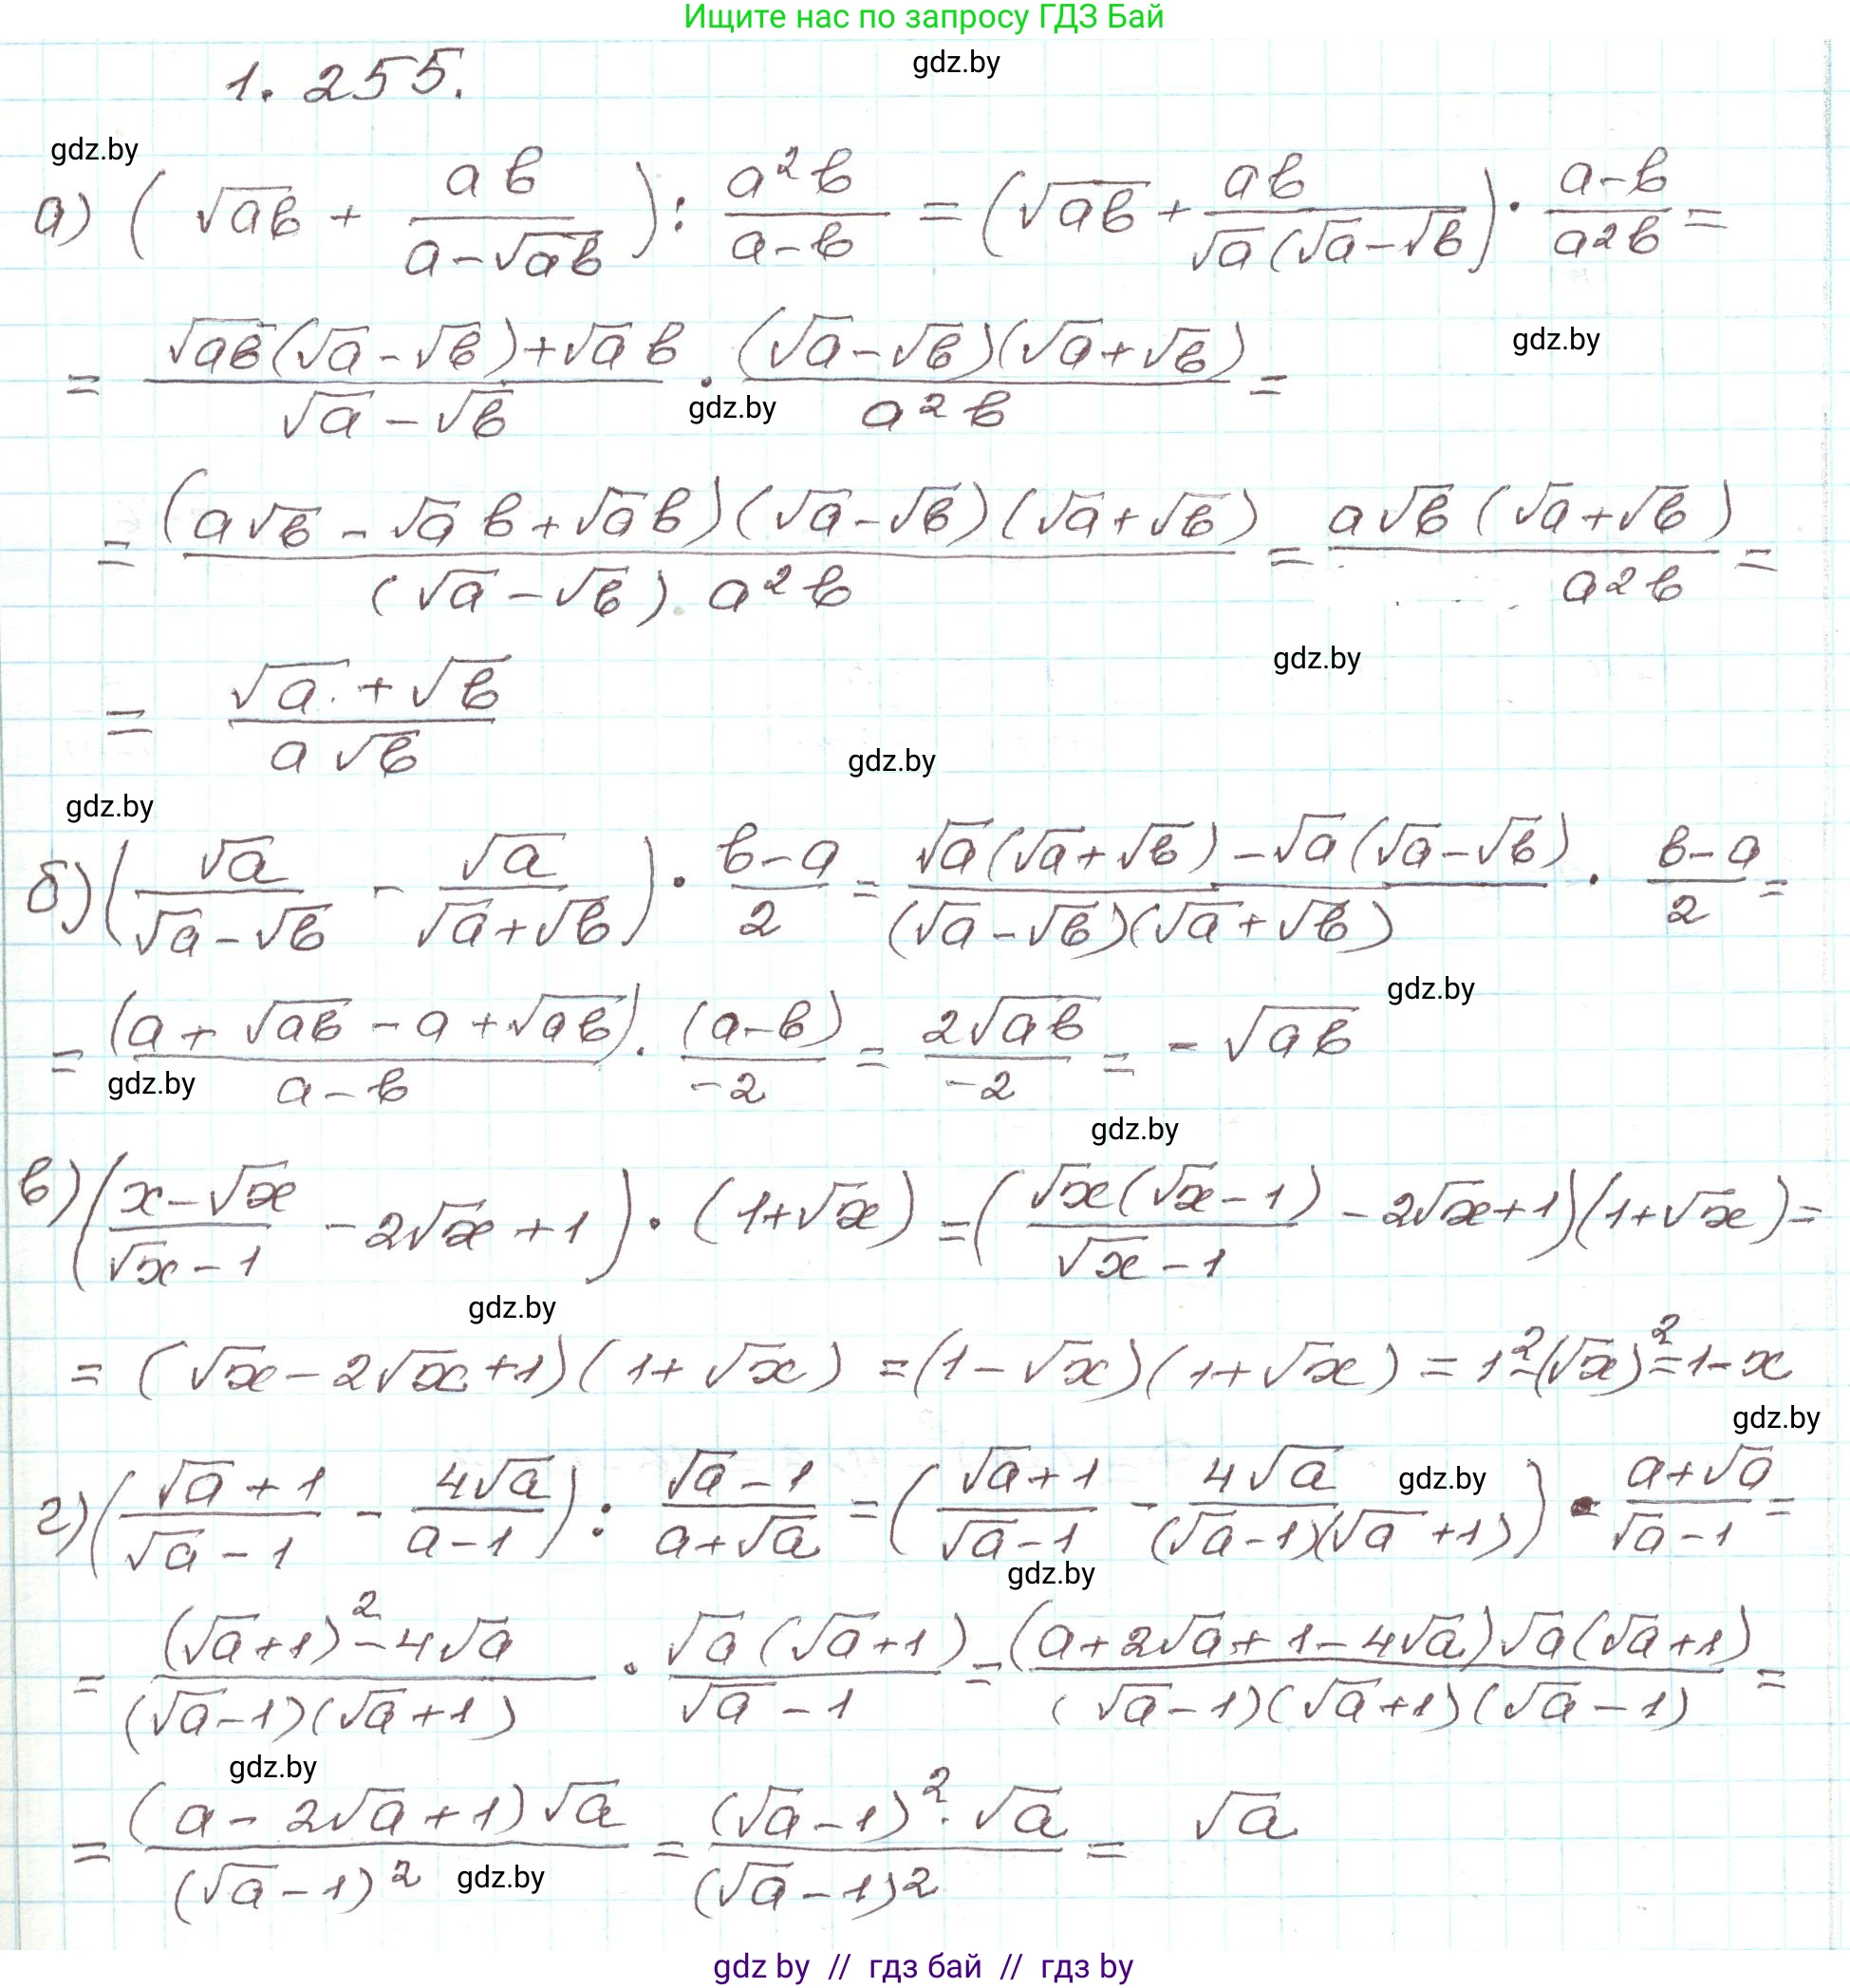 Ищите нас по запросу ГДЗ Бай
gdz.by
1.255.
gdz.by
а) (√ab + ab/(a-√ab)) : a²b/(a-b) = (√ab + ab/(√a(√a-√b))) · (a-b)/(a²b) =
gdz.by
= (√ab(√a-√b)+√a b)/(√a-√b) · ((√a-√b)(√a+√b))/(a²b) =
gdz.by
= ((a√b - √a b + √a b)(√a-√b)(√a+√b))/((√a-√b) a²b) = (a√b(√a+√b))/(a²b) =
gdz.by
= (√a + √b)/(a√b)
gdz.by
gdz.by
б) (√a/(√a-√b) - √a/(√a+√b)) · (b-a)/2 = (√a(√a+√b) - √a(√a-√b))/((√a-√b)(√a+√b)) · (b-a)/2 =
gdz.by
= (a + √ab - a + √ab)/(a-b) · (a-b)/(-2) = 2√ab/(-2) = -√ab
gdz.by
gdz.by
в) ((x-√x)/(√x-1) - 2√x + 1) · (1+√x) = (√x(√x-1)/(√x-1) - 2√x+1)(1+√x) =
gdz.by
= (√x - 2√x + 1)(1+√x) = (1-√x)(1+√x) = 1² - (√x)² = 1-x
gdz.by
г) ((√a+1)/(√a-1) - 4√a/(a-1)) : (√a-1)/(a+√a) = ((√a+1)/(√a-1) - 4√a/((√a-1)(√a+1))) · (a+√a)/(√a-1) =
gdz.by
gdz.by
= ((√a+1)² - 4√a)/((√a-1)(√a+1)) · √a(√a+1)/(√a-1) = ((a+2√a+1-4√a)√a(√a+1))/((√a-1)(√a+1)(√a-1)) =
gdz.by
= ((a-2√a+1)√a)/(√a-1)² = ((√a-1)²·√a)/(√a-1)² = √a
gdz.by
gdz by // гдз бай // гдз by